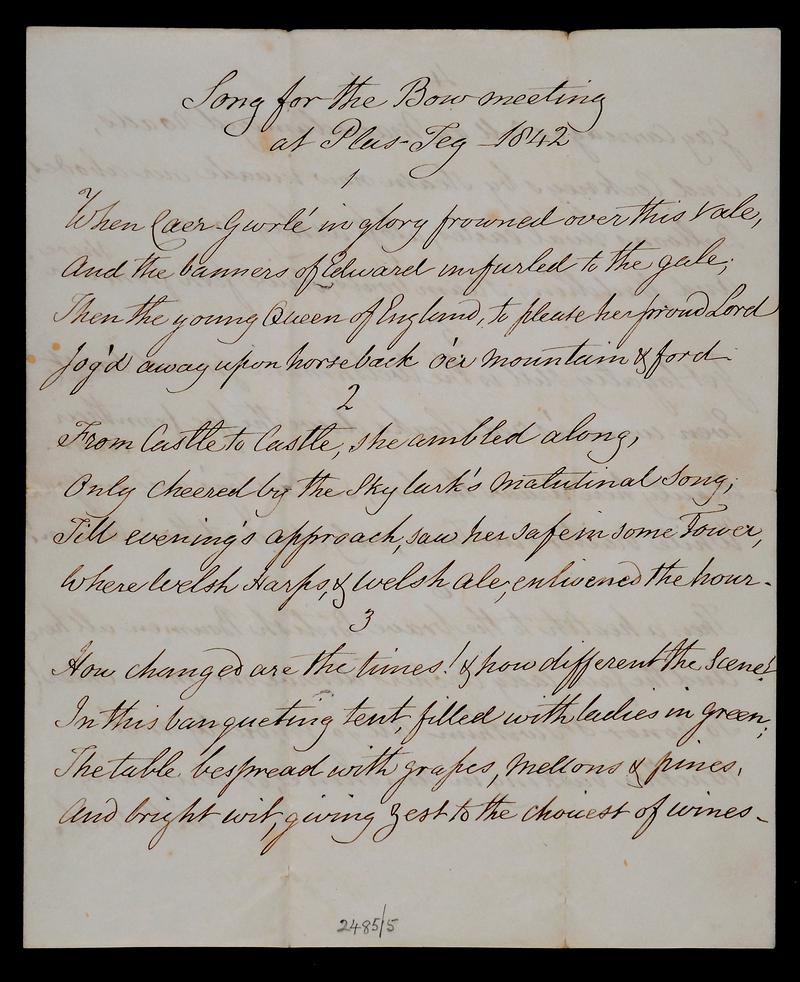 Song for the Bow meeting
at Plas-Teg - 1842
1
When Caer-Gwrlé in glory frowned over this Vale,
And the banners of Edward unfurled to the gale;
Then the young Queen of England, to please her proud Lord
Jog'd away upon horseback o'er mountain & ford -
2
From Castle to Castle, she ambled along,
Only cheered by the Skylark's matutinal song;
Till evening's approach, saw her safe in some Tower,
Where Welsh Harps, & Welsh ale, enlivened the hour -
3
How changed are the times! & how different the Scene!
In this banqueting tent, filled with ladies in green;
The table bespread with grapes, mellons & pines,
And bright wit, giving zest to the choicest of wines -
2485/5